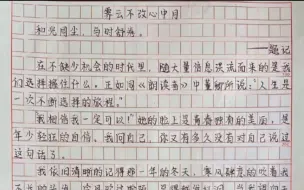 雾云不改心中月
和光同尘，与时舒卷。
——题记
在不缺少机会的时代里，随大量信息浪流而来的是我
们选择握住什么。正如同《朗读者》中董卿所说："人生是
一次不断选择的旅程。"
我相信我一定可以！她的脸上是青春独有的美丽，是
年少轻狂的自信。我问自己，你又有多久没有对自己说过
这句话了。
我依旧清晰的记得那一年的冬天，寒风肆意的吹着我